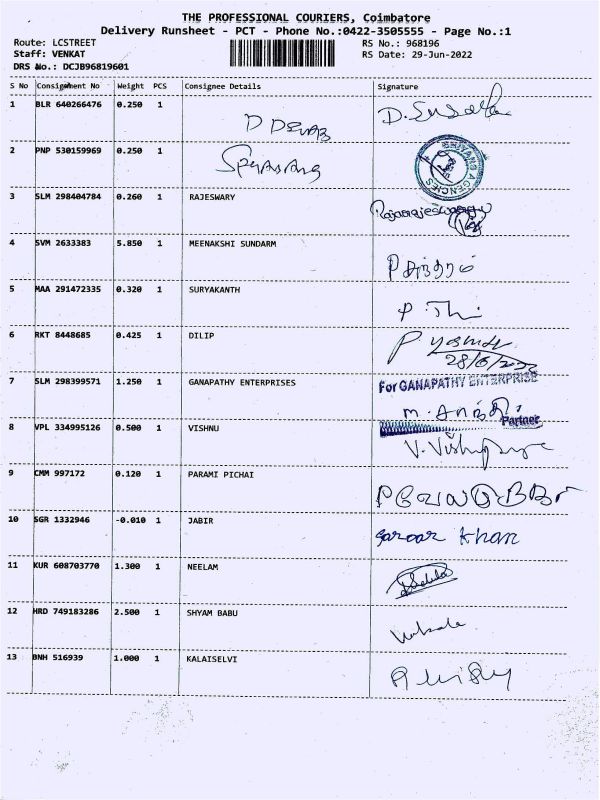 THE PROFESSIONAL COURIERS, Coimbatore
Delivery Runsheet - PCT - Phone No.:0422-3505555 - Page No.:1
Route: LCSTREET RS No.: 968196
Staff: VENKAT RS Date: 29-Jun-2022
DRS No.: DCJB96819601
S No Consignment No Weight PCS Consignee Details Signature
1 BLR 640266476 0.250 1
2 PNP 530159969 0.250 1
SHIYANG AGENCIES
3 SLM 298404784 0.260 1 RAJESWARY
4 SVM 2633383 5.850 1 MEENAKSHI SUNDARM
5 MAA 291472335 0.320 1 SURYAKANTH
6 RKT 8448685 0.425 1 DILIP
28/6/2022
7 SLM 298399571 1.250 1 GANAPATHY ENTERPRISES For GANAPATHY ENTERPRISE
Partner
8 VPL 334995126 0.500 1 VISHNU
9 CMM 997172 0.120 1 PARAMI PICHAI
10 SGR 1332946 -0.010 1 JABIR Saroar Khan
11 KUR 608703770 1.300 1 NEELAM
12 HRD 749183286 2.500 1 SHYAM BABU
13 BNH 516939 1.000 1 KALAISELVI